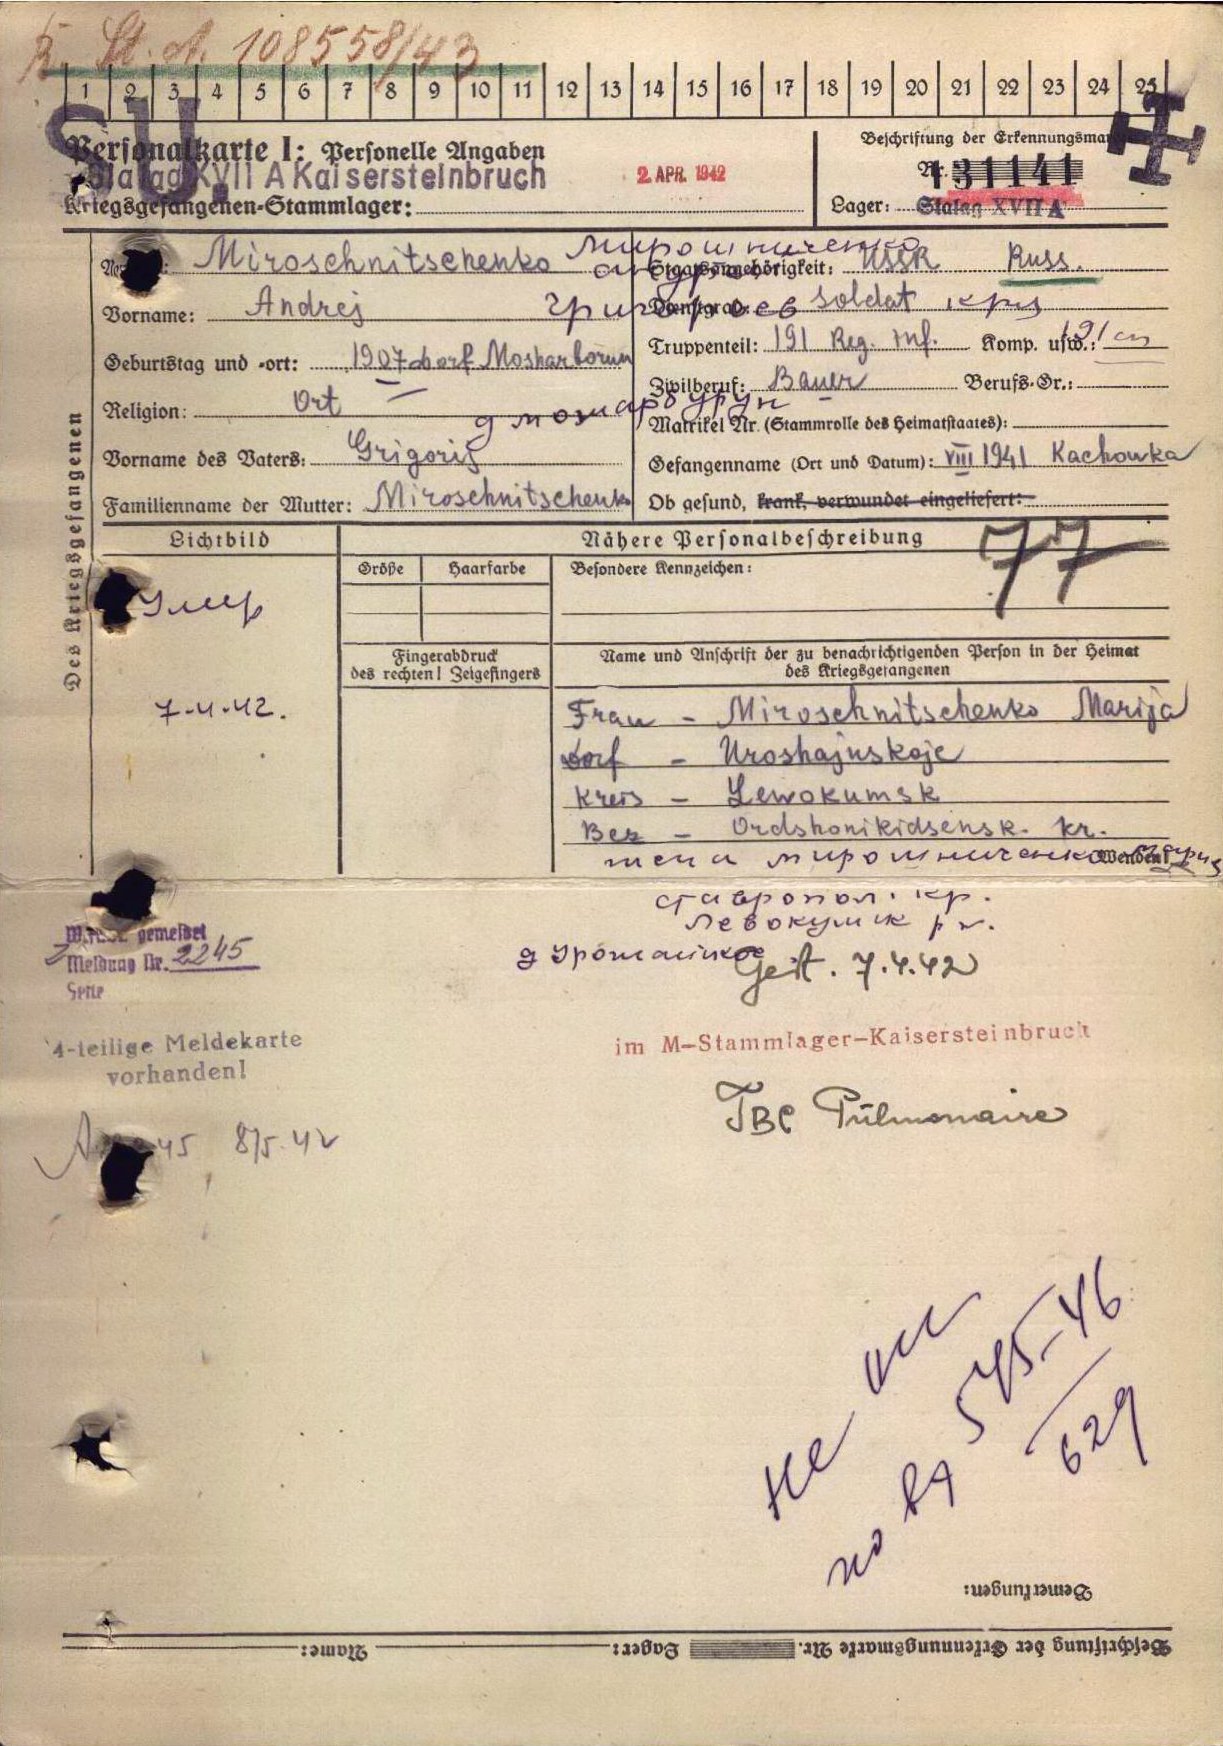 St. A. 108558/43
1 2 3 4 5 6 7 8 9 10 11 12 13 14 15 16 17 18 19 20 21 22 23 24 25
SU.
Personalkarte I: Personelle Angaben
Stalag XVII A Kaisersteinbruch
Kriegsgefangenen-Stammlager:
2. APR. 1942
Beschriftung der Erkennungsmarke
Nr. 131141
Lager: Stalag XVII A
Des Kriegsgefangenen
Miroschnitschenko
Мирошниченко
Vorname: Andrej
Григорьев
Geburtstag und -ort: 1907 dorf
Religion: Ort
Vorname des Vaters: Grigorij
Familienname der Mutter: Miroschnitschenk
Staatsangehörigkeit: USSR Russ.
Dienstgrad: Soldat
Truppenteil: 191 Reg. Inf. Komp. usw.: 191 сп
Zivilberuf: Bauer Berufs-Gr.:
Matrikel Nr. (Stammrolle des Heimatstaates):
Gefangenname (Ort und Datum): VIII 1941 Kachowka
Ob gesund, krank, verwundet eingeliefert:
Lichtbild
Умер
7-4-42.
Nähere Personalbeschreibung
77
Größe Haarfarbe
Besondere Kennzeichen:
Fingerabdruck
des rechten! Zeigefingers
Name und Anschrift der zu benachrichtigenden Person in der Heimat
des Kriegsgefangenen
Frau - Miroschnitschenko Marija
Dorf - Uroshajnskoje
Kreis - Lewokumsk
Bez - Ordshonikidsensk. kr.
жена Мирошниченко Мария
Wenden!
ставропол. кр.
Левокумск
gemeldet
Meldung Nr. 2245
Seite
Gest. 7.4.42
im M-Stammlager-Kaisersteinbruch
4-teilige Meldekarte
vorhanden!
TBC Pulmonaire
45 8/5.42
не
по 545-46
629
Bemerkungen:
Beschriftung der Erkennungsmarke Nr. Lager: Name: